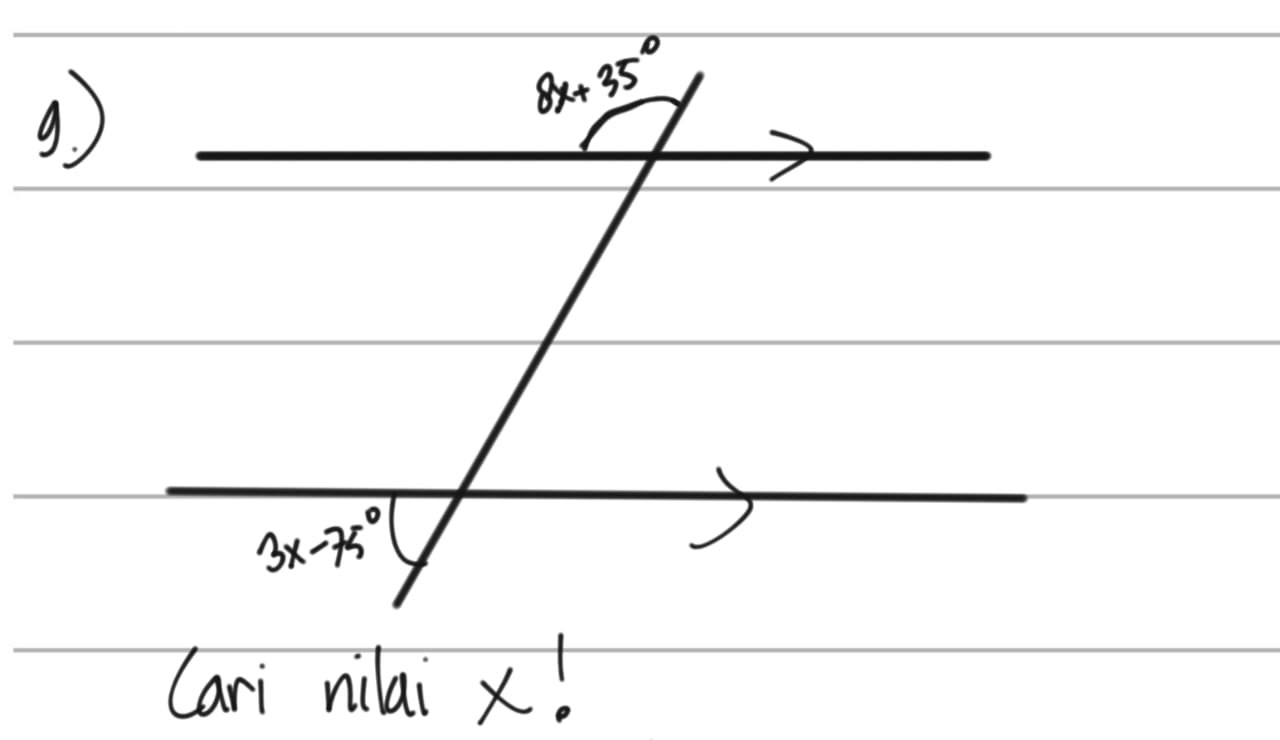 9.)
8x+35°
3x-75°
Cari nilai x!